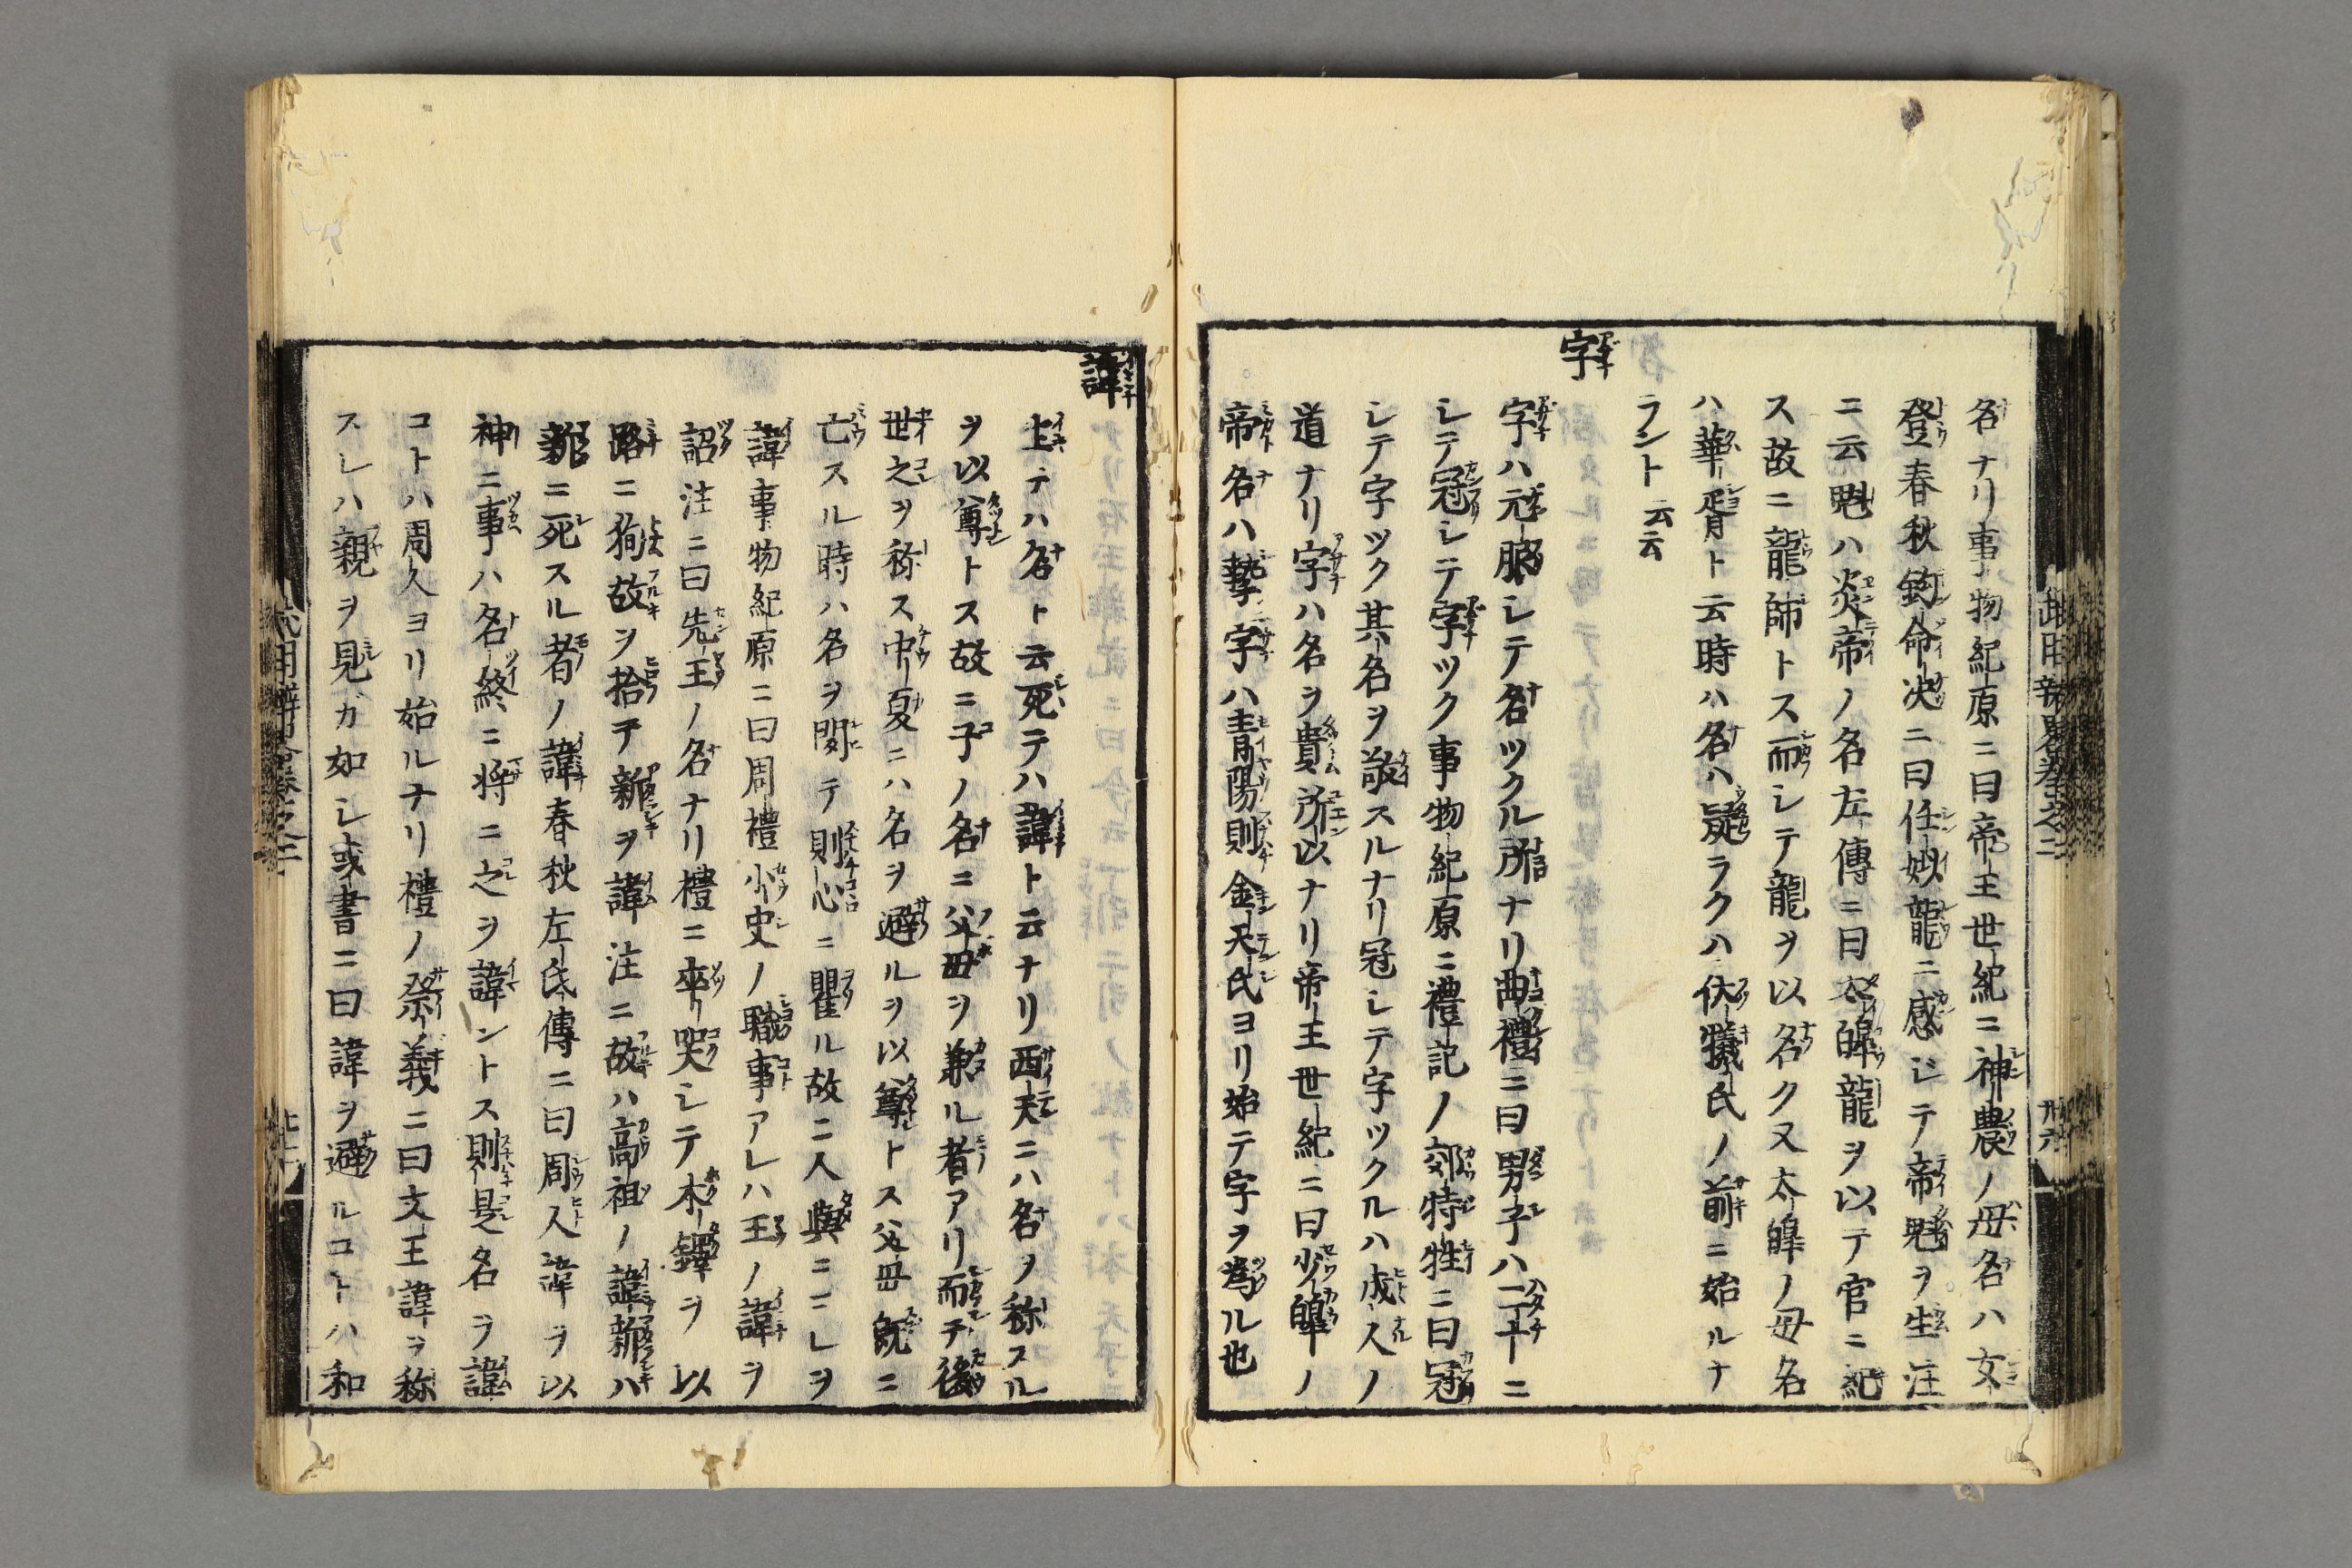 名ナリ事物紀原ニ曰帝王世紀ニ神農ノ母名ハ女
登春秋鈎命决ニ曰任姒龍ニ感ジテ帝魁ヲ生注
ニ云魁ハ炎帝ノ名左傳ニ曰太皥龍ヲ以テ官ニ紀
ス故ニ龍師トス而シテ龍ヲ以名ク又太皥ノ母名
ハ華胥ト云時ハ名ハ疑ラクハ伏犠氏ノ前ニ始ルナ
ラント云云
字
字ハ元服シテ名ツクル所ナリ曲禮ニ曰男子ハ二十ニ
シテ冠シテ字ツク事物紀原ニ禮記ノ郊特牲ニ曰冠
シテ字ツク其名ヲ敬スルナリ冠シテ字ツクルハ成人ノ
道ナリ字ハ名ヲ貴所以ナリ帝王世紀ニ曰少皥ノ
帝名ハ摯字ハ青陽則金天氏ヨリ始テ字ヲ爲ル也
諱
生テハ名ト云死テハ諱ト云ナリ西天ニハ名ヲ称スル
ヲ以尊トス故ニ子ノ名ニ父母ヲ兼ル者アリ而テ後
世之ヲ称ス中夏ニハ名ヲ避ルヲ以尊トス父母既ニ
亡スル時ハ名ヲ聞テ則心ニ瞿ル故ニ人與ニコレヲ
諱事物紀原ニ曰周禮小史ノ職事アレハ王ノ諱ヲ
詔注ニ曰先王ノ名ナリ禮ニ卒哭シテ木鐸ヲ以
路ニ狥故ヲ捨テ新ヲ諱注ニ故ハ高祖ノ諱新ハ
新ニ死スル者ノ諱春秋左氏傳ニ曰周人諱ヲ以
神ニ事ハ名終ニ将ニ之ヲ諱ントス則是名ヲ諱
コトハ周人ヨリ始ルナリ禮ノ祭義ニ曰文王諱ヲ称
スレハ親ヲ見ガ如シ或書ニ曰諱ヲ避ルコトハ和